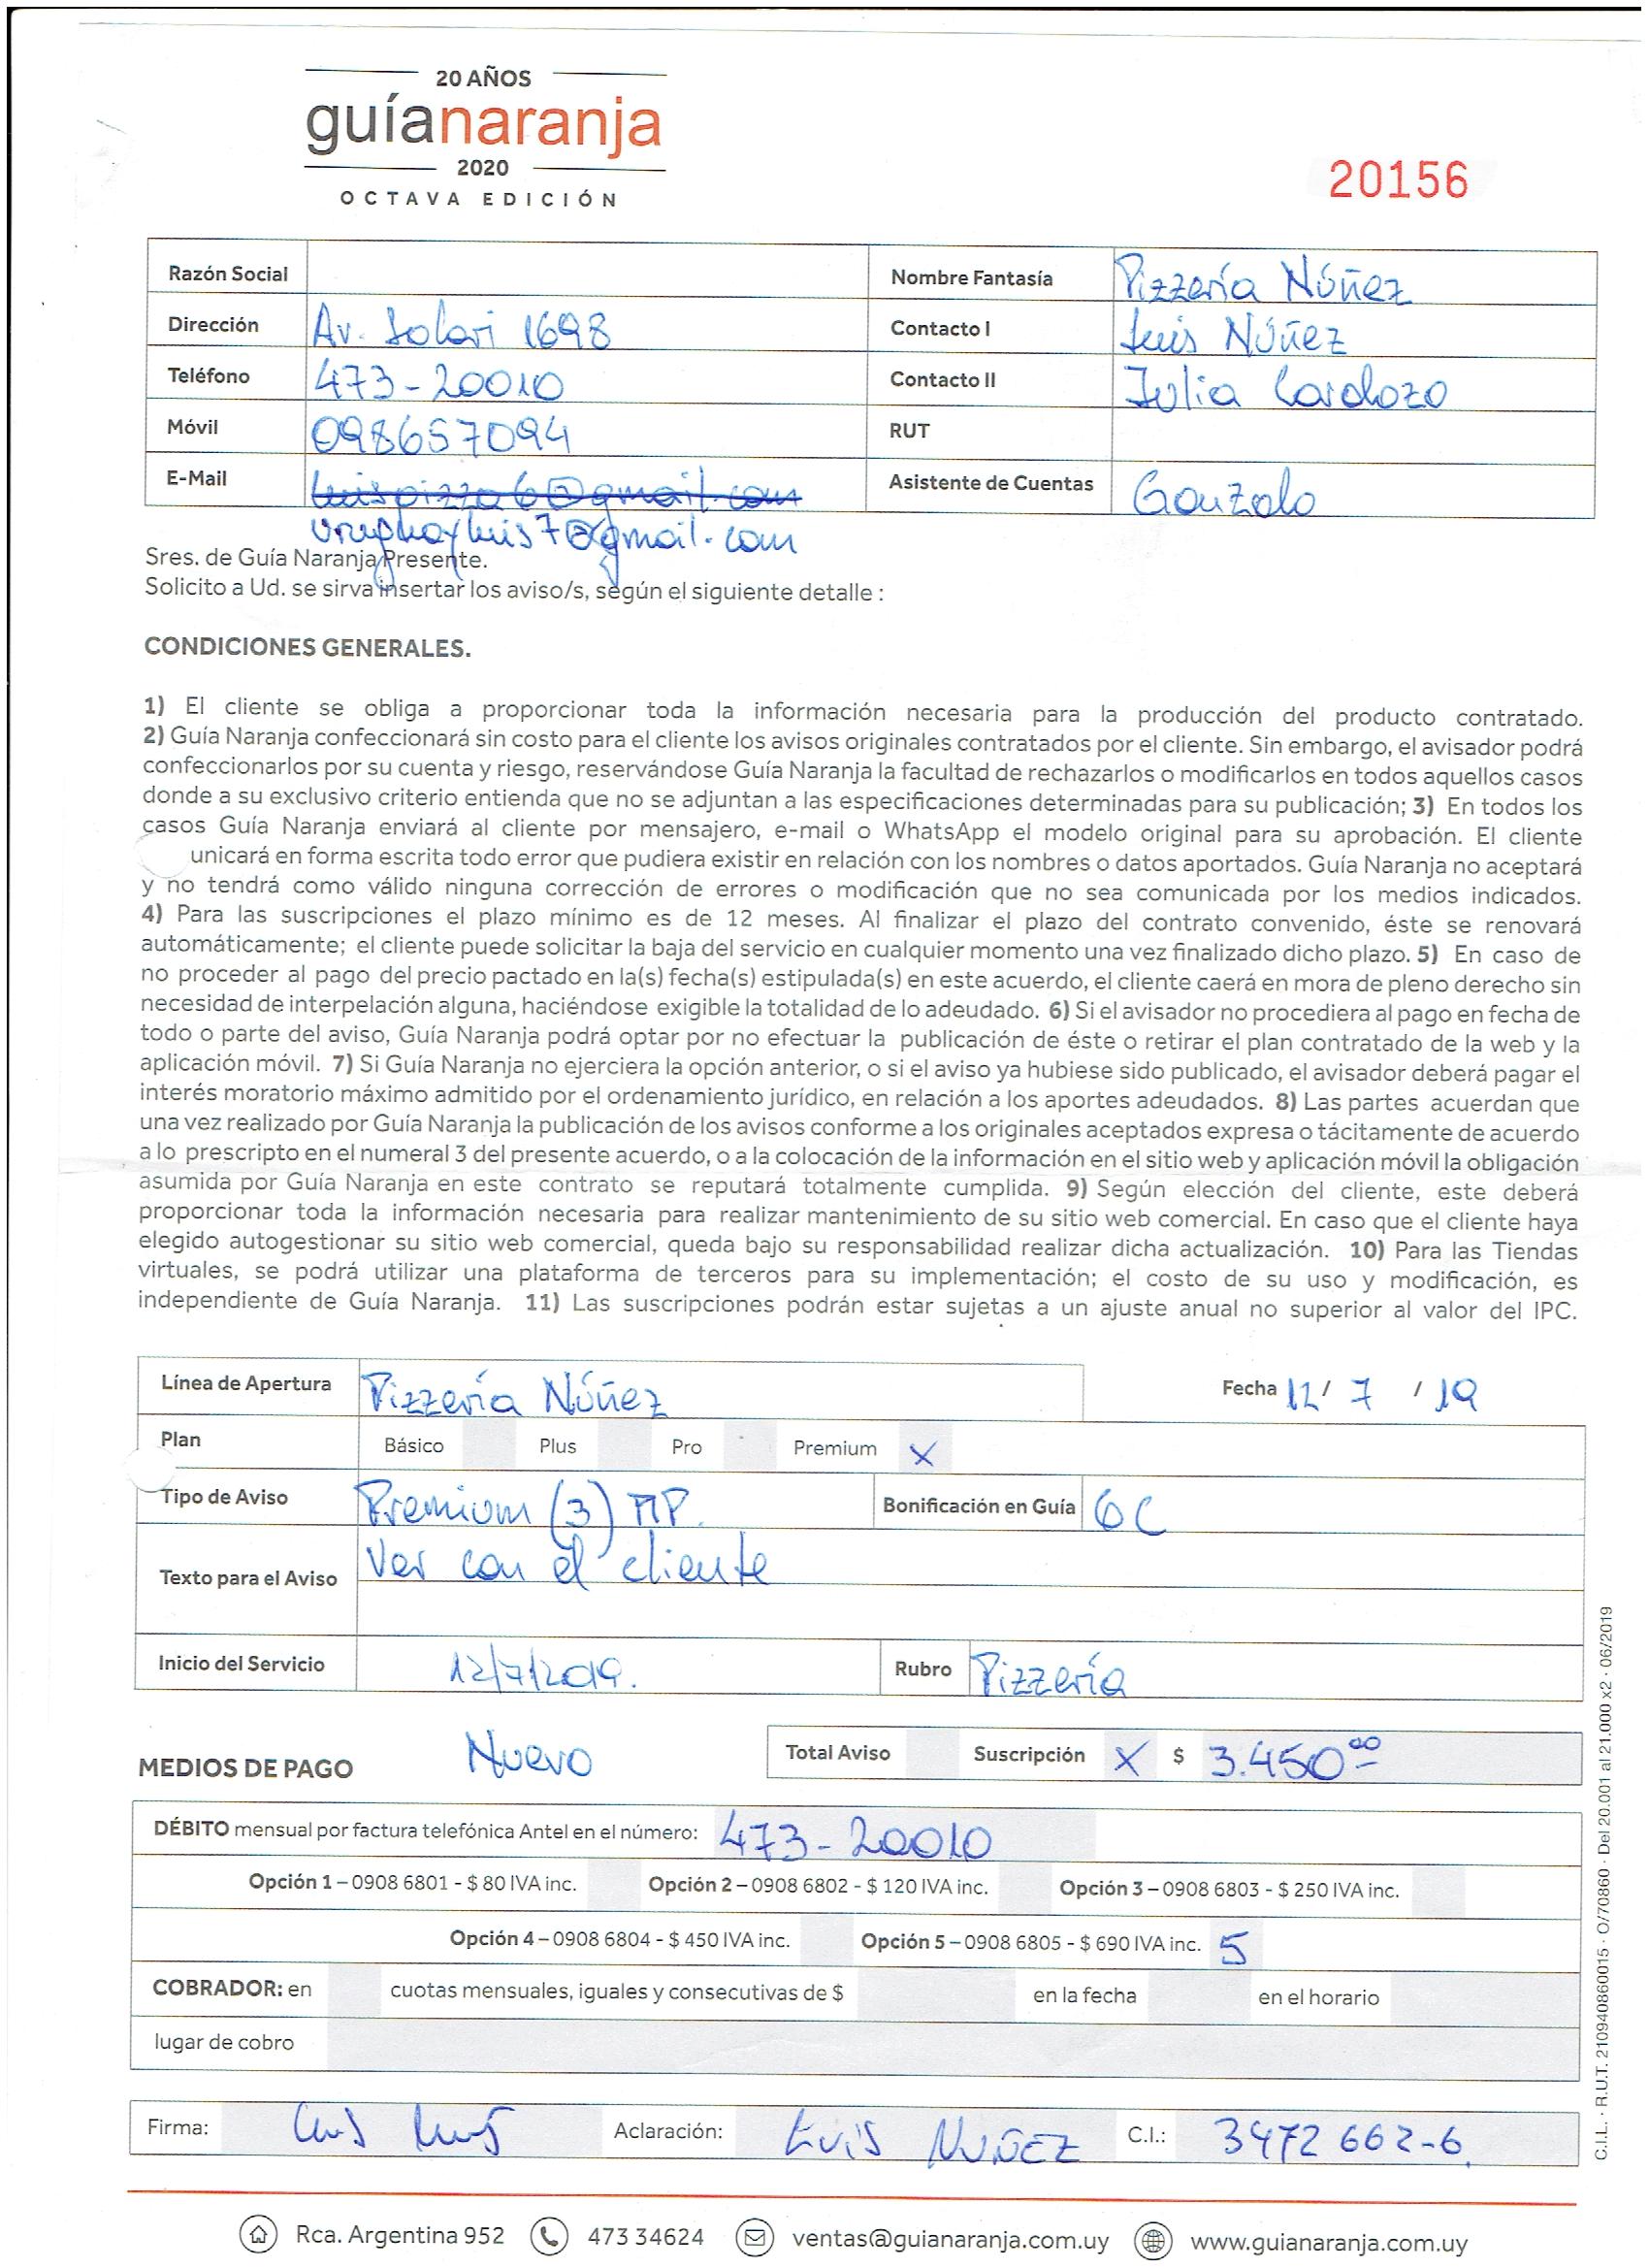 20 AÑOS
guíanaranja
2020
OCTAVA EDICIÓN
20156
Razón Social
Nombre Fantasía Pizzería Núñez
Dirección Av. Solari 1698
Contacto I Luis Núñez
Teléfono 473-20010
Contacto II Julia Cardozo
Móvil 098657094
RUT
E-Mail luispizza6@gmail.com
Asistente de Cuentas Gonzalo
uruguayluis7@gmail.com
Sres. de Guía Naranja Presente.
Solicito a Ud. se sirva insertar los aviso/s, según el siguiente detalle :
CONDICIONES GENERALES.
1) El cliente se obliga a proporcionar toda la información necesaria para la producción del producto contratado.
2) Guía Naranja confeccionará sin costo para el cliente los avisos originales contratados por el cliente. Sin embargo, el avisador podrá
confeccionarlos por su cuenta y riesgo, reservándose Guía Naranja la facultad de rechazarlos o modificarlos en todos aquellos casos
donde a su exclusivo criterio entienda que no se adjuntan a las especificaciones determinadas para su publicación; 3) En todos los
casos Guía Naranja enviará al cliente por mensajero, e-mail o WhatsApp el modelo original para su aprobación. El cliente
unicará en forma escrita todo error que pudiera existir en relación con los nombres o datos aportados. Guía Naranja no aceptará
y no tendrá como válido ninguna corrección de errores o modificación que no sea comunicada por los medios indicados.
4) Para las suscripciones el plazo mínimo es de 12 meses. Al finalizar el plazo del contrato convenido, éste se renovará
automáticamente; el cliente puede solicitar la baja del servicio en cualquier momento una vez finalizado dicho plazo. 5) En caso de
no proceder al pago del precio pactado en la(s) fecha(s) estipulada(s) en este acuerdo, el cliente caerá en mora de pleno derecho sin
necesidad de interpelación alguna, haciéndose exigible la totalidad de lo adeudado. 6) Si el avisador no procediera al pago en fecha de
todo o parte del aviso, Guía Naranja podrá optar por no efectuar la publicación de éste o retirar el plan contratado de la web y la
aplicación móvil. 7) Si Guía Naranja no ejerciera la opción anterior, o si el aviso ya hubiese sido publicado, el avisador deberá pagar el
interés moratorio máximo admitido por el ordenamiento jurídico, en relación a los aportes adeudados. 8) Las partes acuerdan que
una vez realizado por Guía Naranja la publicación de los avisos conforme a los originales aceptados expresa o tácitamente de acuerdo
a lo prescripto en el numeral 3 del presente acuerdo, o a la colocación de la información en el sitio web y aplicación móvil la obligación
asumida por Guía Naranja en este contrato se reputará totalmente cumplida. 9) Según elección del cliente, este deberá
proporcionar toda la información necesaria para realizar mantenimiento de su sitio web comercial. En caso que el cliente haya
elegido autogestionar su sitio web comercial, queda bajo su responsabilidad realizar dicha actualización. 10) Para las Tiendas
virtuales, se podrá utilizar una plataforma de terceros para su implementación; el costo de su uso y modificación, es
independiente de Guía Naranja. 11) Las suscripciones podrán estar sujetas a un ajuste anual no superior al valor del IPC.
Línea de Apertura Pizzería Núñez
Fecha 12/ 7 / 19
Plan Básico Plus Pro Premium X
Tipo de Aviso Premium (3) MP.
Bonificación en Guía 6C
Texto para el Aviso Ver con el cliente
Inicio del Servicio 12/7/2019.
Rubro Pizzería
MEDIOS DE PAGO Nuevo
Total Aviso Suscripción X $ 3.450 00
DÉBITO mensual por factura telefónica Antel en el número: 473-20010
Opción 1 – 0908 6801 - $ 80 IVA inc. Opción 2 – 0908 6802 - $ 120 IVA inc. Opción 3 – 0908 6803 - $ 250 IVA inc.
Opción 4 – 0908 6804 - $ 450 IVA inc. Opción 5 – 0908 6805 - $ 690 IVA inc. 5
COBRADOR: en cuotas mensuales, iguales y consecutivas de $ en la fecha en el horario
lugar de cobro
Firma: Aclaración: Luis NUÑEZ C.I.: 3472 662-6
C.I.L. · R.U.T. 210940860015 · O/70860 · Del 20.001 al 21.000 x2 · 06/2019
Rca. Argentina 952 473 34624 ventas@guianaranja.com.uy www.guianaranja.com.uy